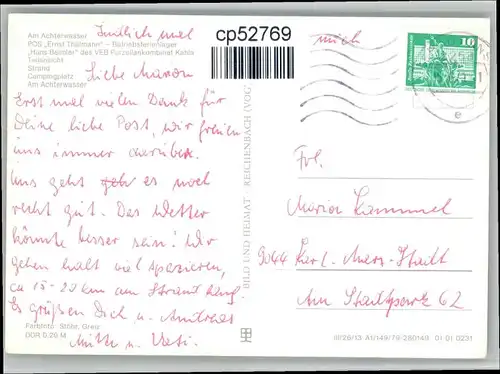 Am Achterwasser
POS „Ernst Thälmann" – Betriebsferienlager
„Hans Beimler" des VEB Porzellankombinat Kahla
Teilansicht
Strand
Campingplatz
Am Achterwasser
cp52769
Liebe
Erst mal vielen Dank für
Deine liebe Post, wir freuen
uns immer darüber.
Uns geht es noch
recht gut. Das Wetter
könnte besser sein! Wir
gehen halt viel spazieren,
ca 15-20 km am Strand lang.
Es grüßen Dich u. Andreas
u.
Farbfoto: Stöhr, Greiz
DDR 0,20 M
BILD UND HEIMAT REICHENBACH (VOGTL)
10
e
Frl.
Maria
9044 Karl-Marx-Stadt
Am Stadtpark 62
III/26/13 A1/149/79-280149 01 01 0231